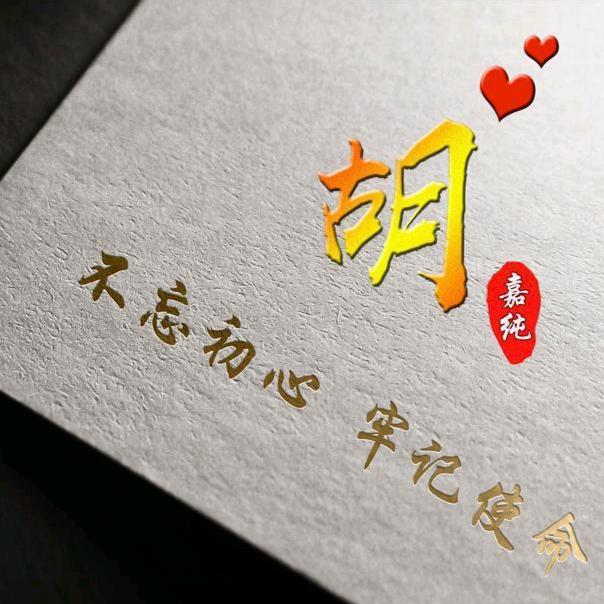 胡
嘉纯
不忘初心 牢记使命